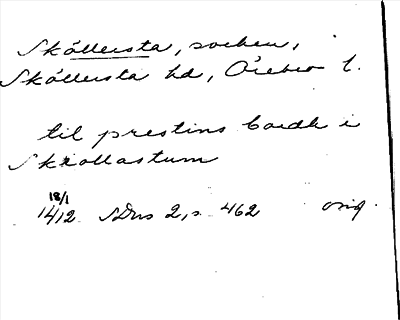 Skållersta, socken,
Skållersta hd, Örebro l.
til prestins bordh i
Skxollastum
18/1
1412 SDns 2, s. 462 orig.